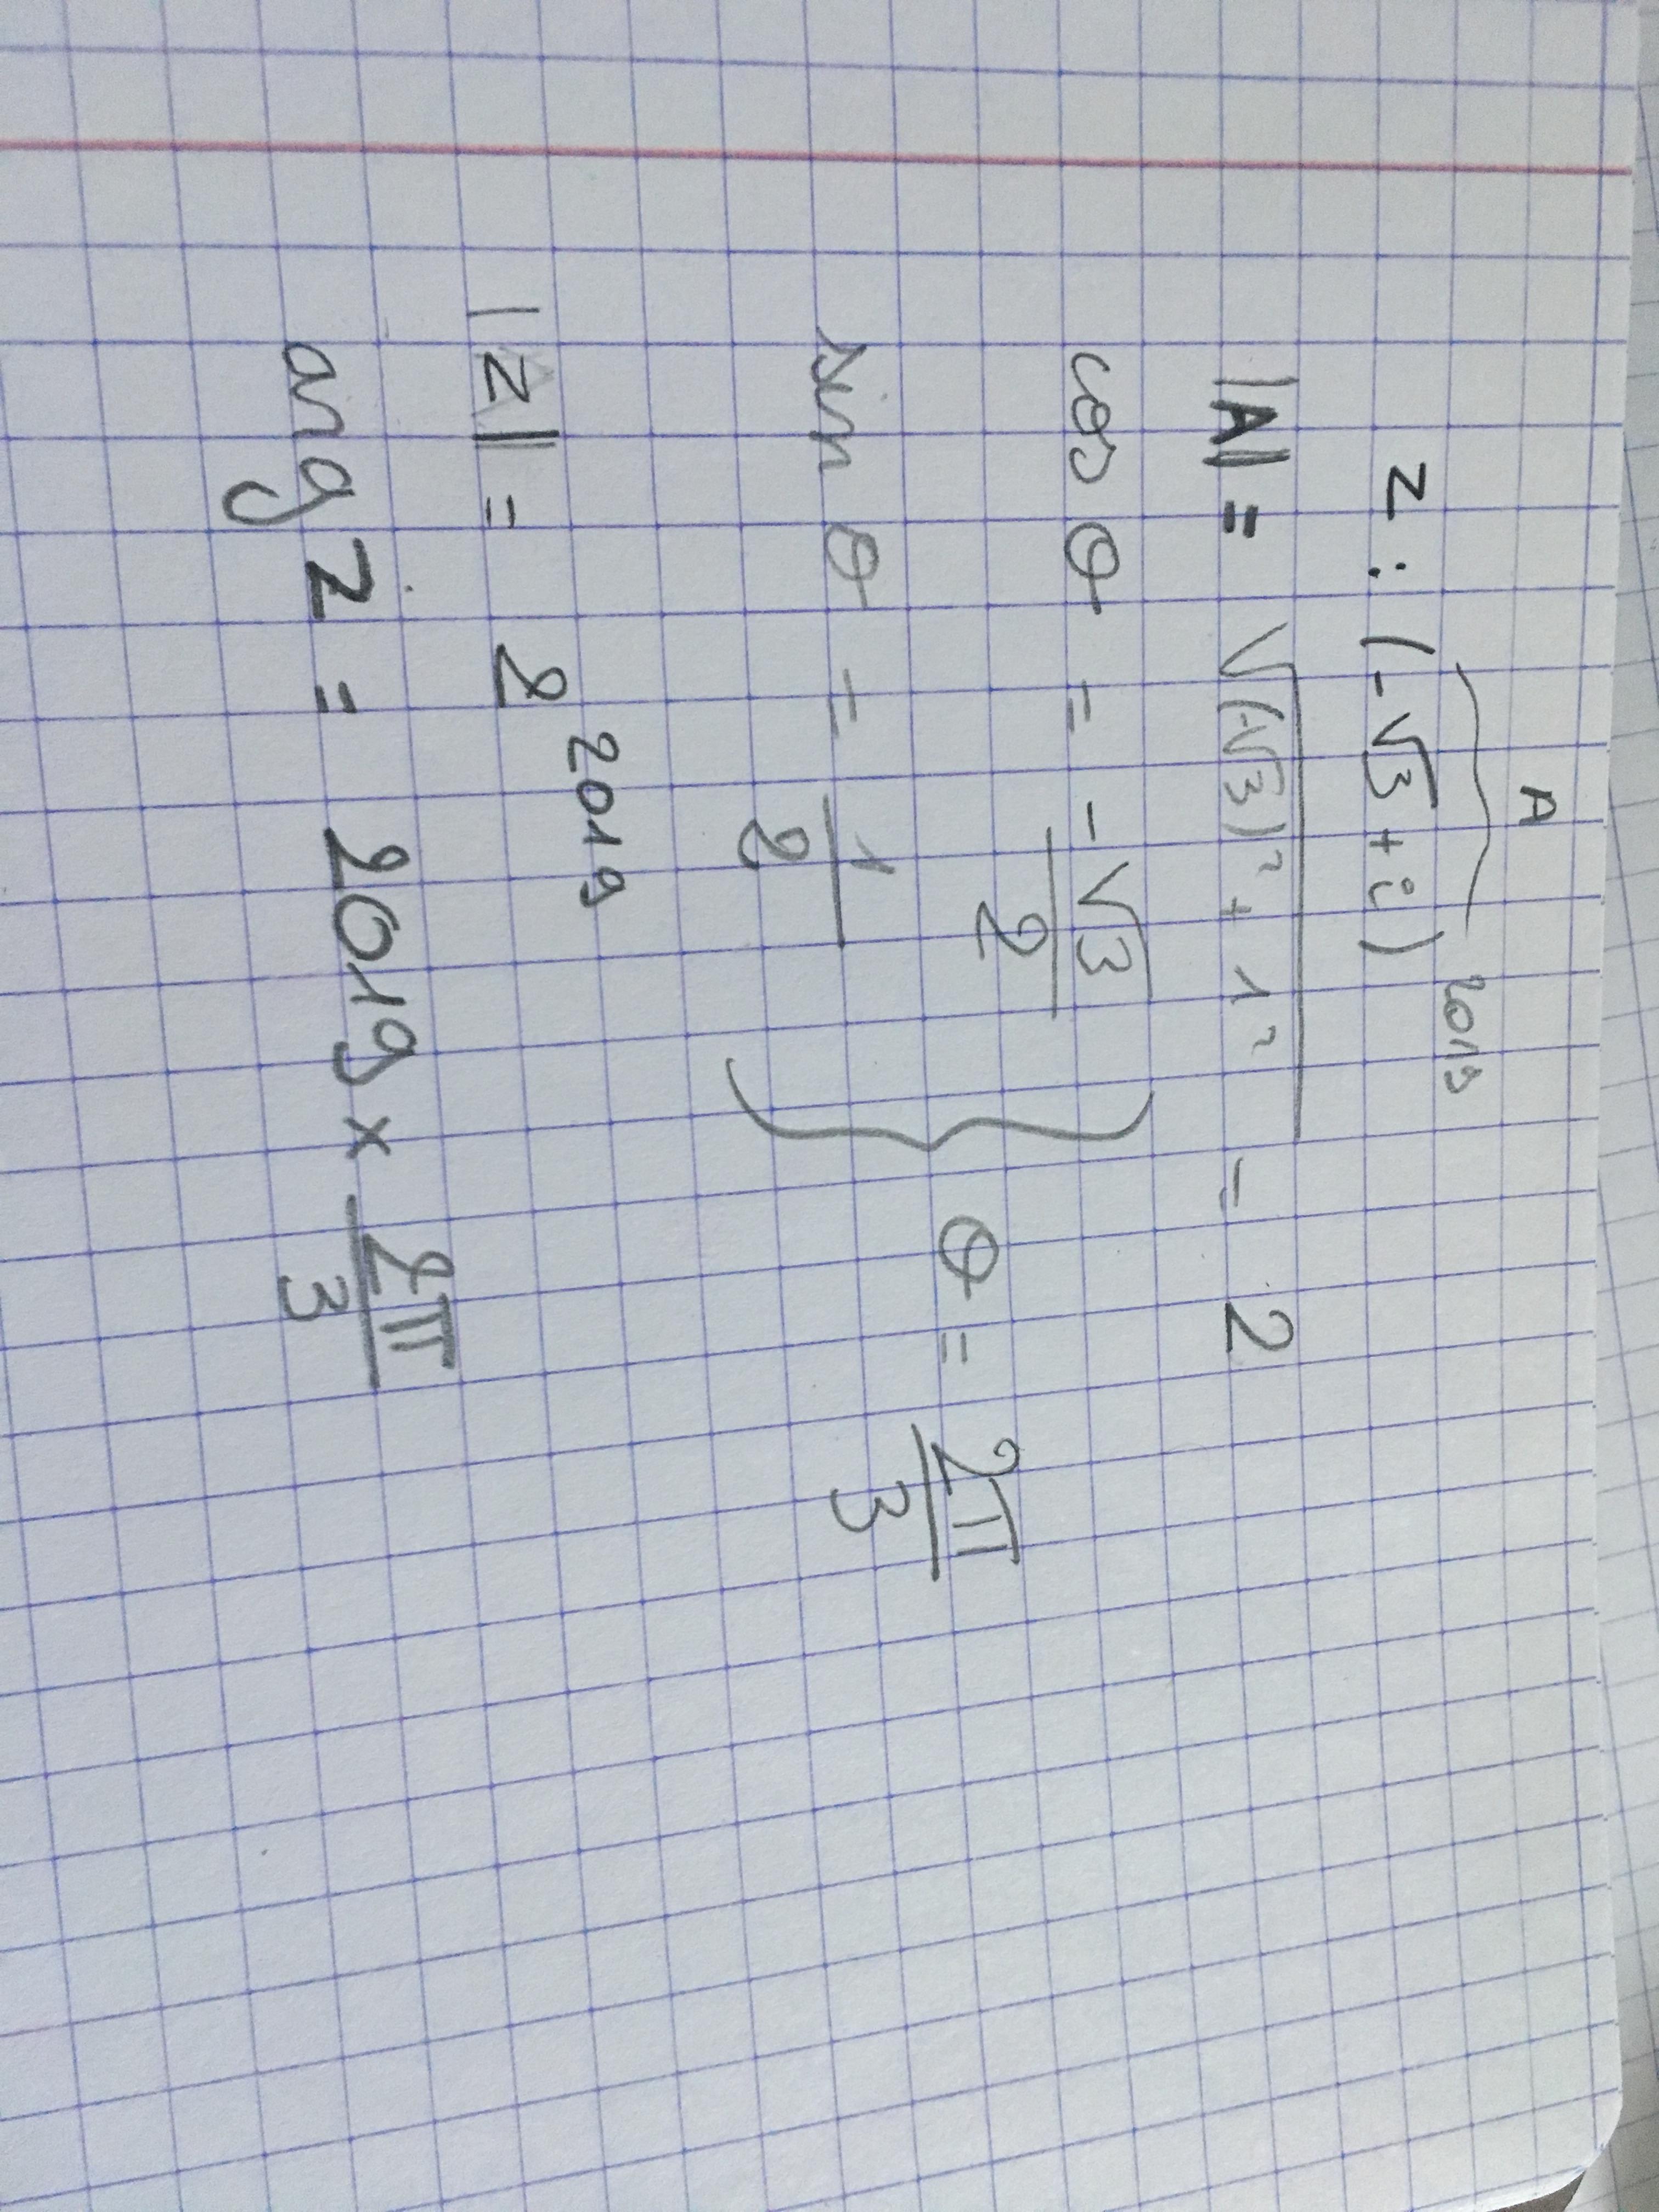 A
z : (-√3 + i)²⁰¹⁹
|A| = √(-√3)² + 1² = 2
cos θ = -√3/2
sin θ = 1/2
θ = 2π/3
|z| = 2²⁰¹⁹
arg z = 2019 × 2π/3